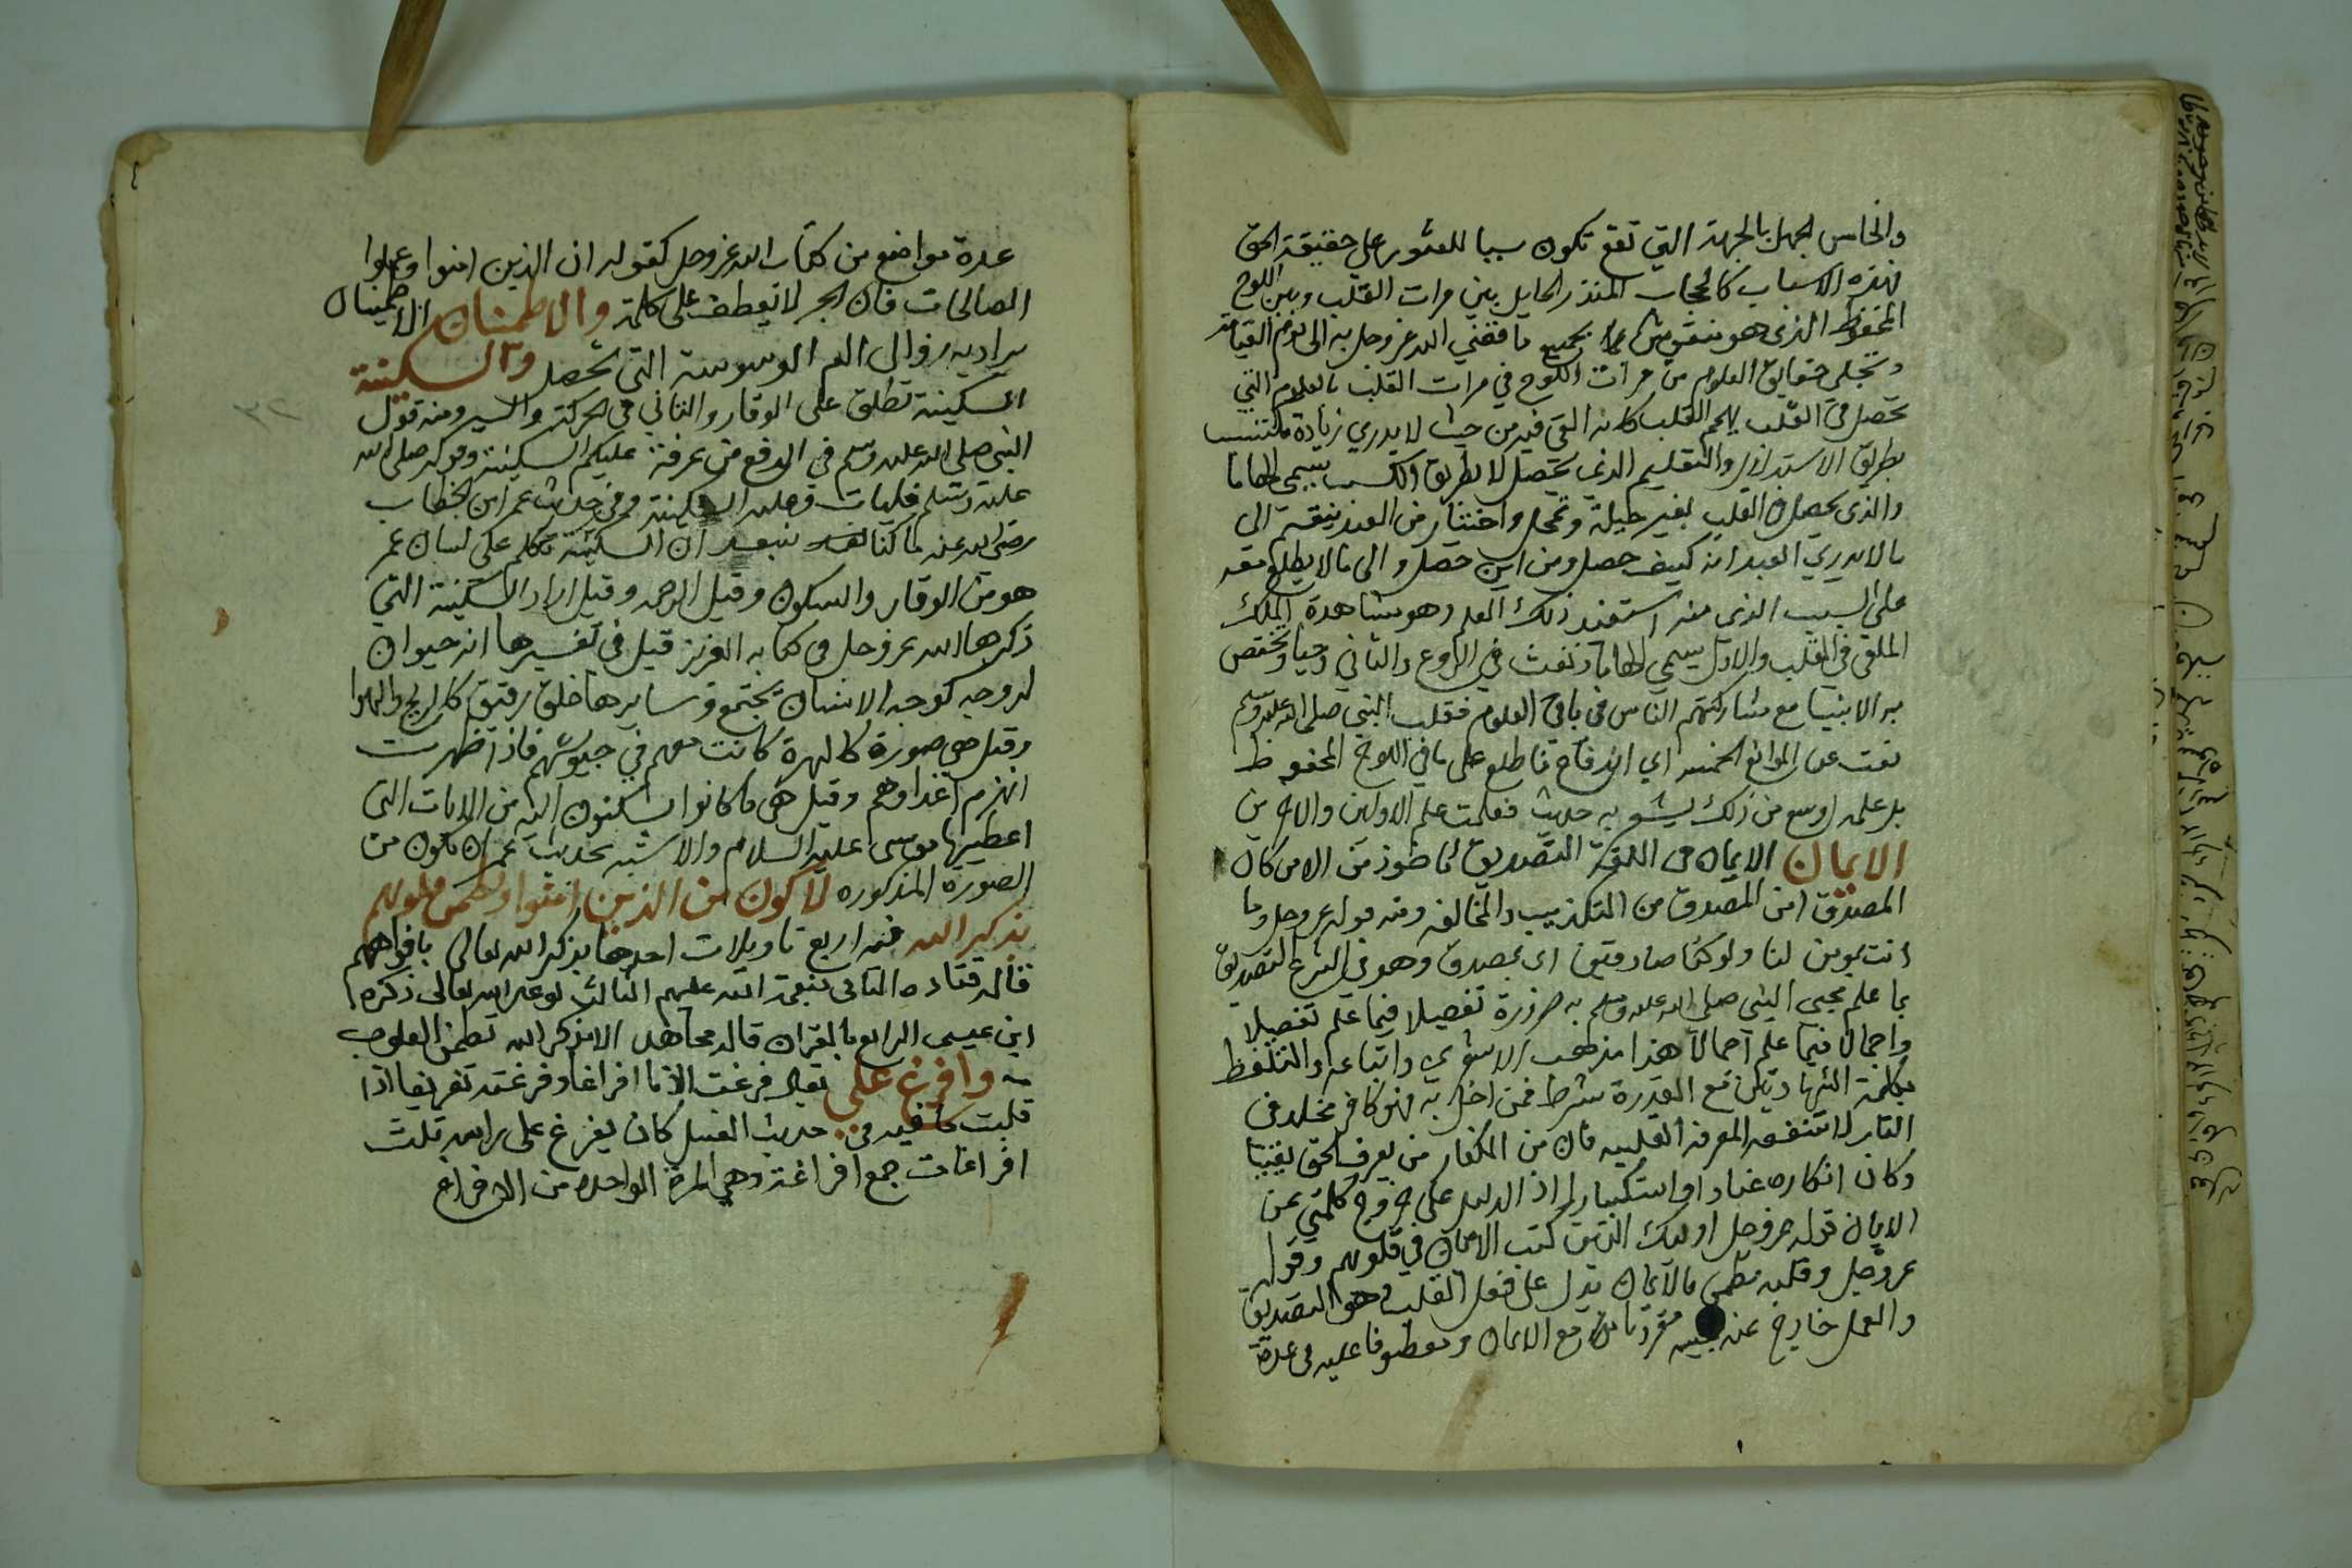 والخامس الجهل بالجهة التي تقع تكون سببا للعثور على حقيقة الحق
فهذه الاسباب كالحجاب المنذر الحايل بين مرات القلب وبين اللوح
المحفوظ الذي هو منقوش بجميع ما قضي الله عز وجل به الى يوم القيامة
وتجلي حقايق العلوم من مرات اللوح في مرات القلب بالعلوم التي
تحصل في القلب يهجم القلب كانه القي فيه من حيث لا يدري زيادة مكتسب
بطريق الاستدلال والتعليم الذي يحصل لا بطريق الكسب يسمى الهاما
والذي يحصل في القلب بغير حيلة وتمحل واختيار من العبد ينقسم الى
ما لا يدري العبد انه كيف حصل ومن اين حصل والى ما لا يطلع معه
على السبب الذي منه استفيد ذلك العلم وهو مشاهدة الملك
الملقي في القلب والاول يسمى الهاما ونفث في الروع والثاني وحيا ويختص
به الانبيا مع مشاركتهم الناس في باقي العلوم فقلب النبي صلى الله عليه وسلم
نفت عنه الموانع الخمسة اي اندفاع فاطلع على ما في اللوح المحفوظ
بل علمه اوسع من ذلك يشير به حديث فعلمت علم الاولين والاخرين
الايمان الايمان في اللغة التصديق ماخوذ من الامن كان
المصدق امن المصدق من التكذيب والمخالفة ومنه قوله عز وجل وما
انت بمومن لنا ولو كنا صادقين اي بمصدق وهو في الشرع التصديق
بما علم مجيى النبي صلى الله عليه وسلم به ضرورة تفصيلا فيما علم تفصيلا
واجمالا فيما علم اجمالا هذا مذهب الاشعري واتباعه والتلفظ
بكلمة الشهادتين مع القدرة شرط فمن اخل به فهو كافر مخلد في
النار لا تنفعه المعرفة القلبيه فان من الكفار من يعرف الحق يقينا
وكان انكاره عنادا واستكبارا اذ الدليل على خروج كلمتي عن
الايمان قوله عز وجل اوليك الذين كتب الايمان في قلوبهم وقوله
عز وجل وقلبه مطمن بالايمان يدل على فعل القلب وهو التصديق
والعمل خارج عنه مع الايمان ومعطوفا عليه في عدة
عدة مواضع من كتاب الله عز وجل كقوله ان الذين امنوا وعملوا
الصالحات فان الجر لا يعطف على كلمة والاطمنان الاطمينان
يراد به زوال الم الوسوسة التي تحصل والسكينة
السكينة تطلق على الوقار والتاني في الحركة والسير ومنه قول
النبي صلى الله عليه وسلم في الدفع من عرفة عليكم السكينة وقوله صلى الله
عليه وسلم فليات وعليه السكينة وفي حديث عمر ابن الخطاب
رضي الله عنه ما كنا نبعد ان السكينة تكلم على لسان عمر
هو من الوقار والسكون وقيل الرحمه وقيل اراد السكينة التي
ذكرها الله عز وجل في كتابه العزيز قيل في تفسيرها انه حيوان
له وجه كوجه الانسان مجتمع وسايرها خلق رقيق كالريح والهوا
وقيل هي صورة كالهرة كانت معهم في جيوشهم فاذا ظهرت
انهزم اعداوهم وقيل هي ما كانوا يسكنون اليه من الايات التي
اعطيها موسى عليه السلام والاشبه بحديث عمر ان تكون من
الصورة المذكوره لاكون من الذين امنوا وتطمن قلوبهم
بذكر الله فيه اربع تاويلات احدها بذكر الله تعالى بافواههم
قاله قتاده الثاني بنعمة الله عليهم الثالث بوعد الله تعالى ذكره
ابن عيسى الرابع بالقران قاله مجاهد الا بذكر الله تطمن القلوب
وافرغ علي يقال فرغت الانا افراغا وفرغته تفريغا اذا
قلبت ما فيه في حديث الغسل كان يفرغ على راسه ثلث
افراغات جمع افراغة وهي المرة الواحدة من الافراغ